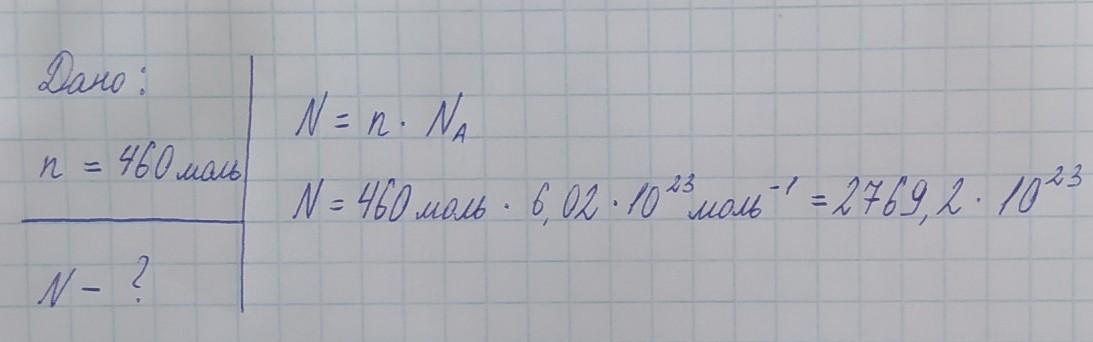 Дано:
n = 460 моль
N - ?
N = n · N_A
N = 460 моль · 6,02 · 10²³ моль⁻¹ = 2769,2 · 10²³